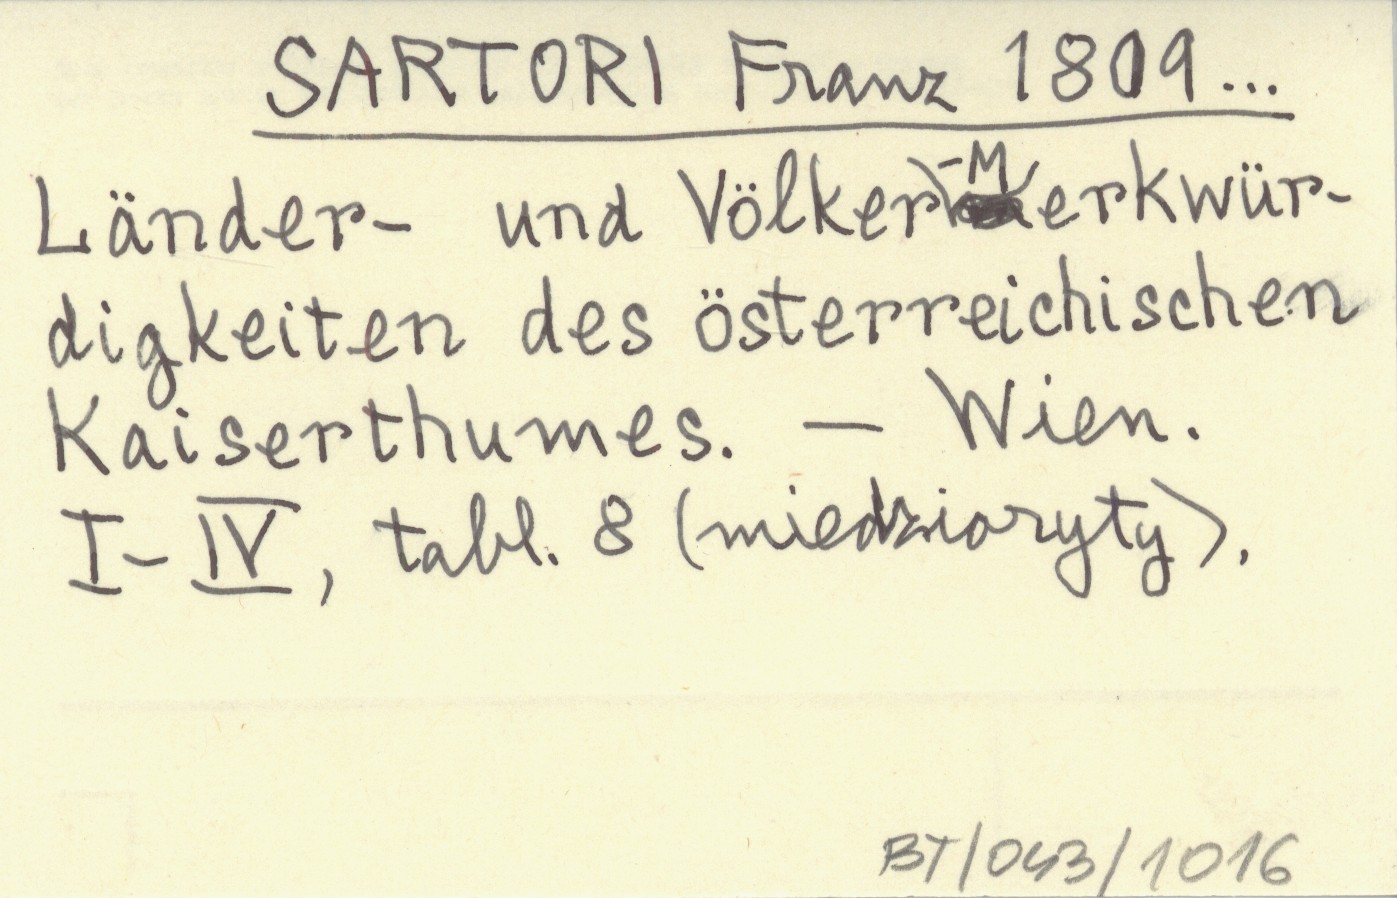 SARTORI Franz 1809...
Länder- und Völker-Merkwür-
digkeiten des österreichischen
Kaiserthumes. — Wien.
I-IV, tabl. 8 (miedzioryty).
BT/043/1016